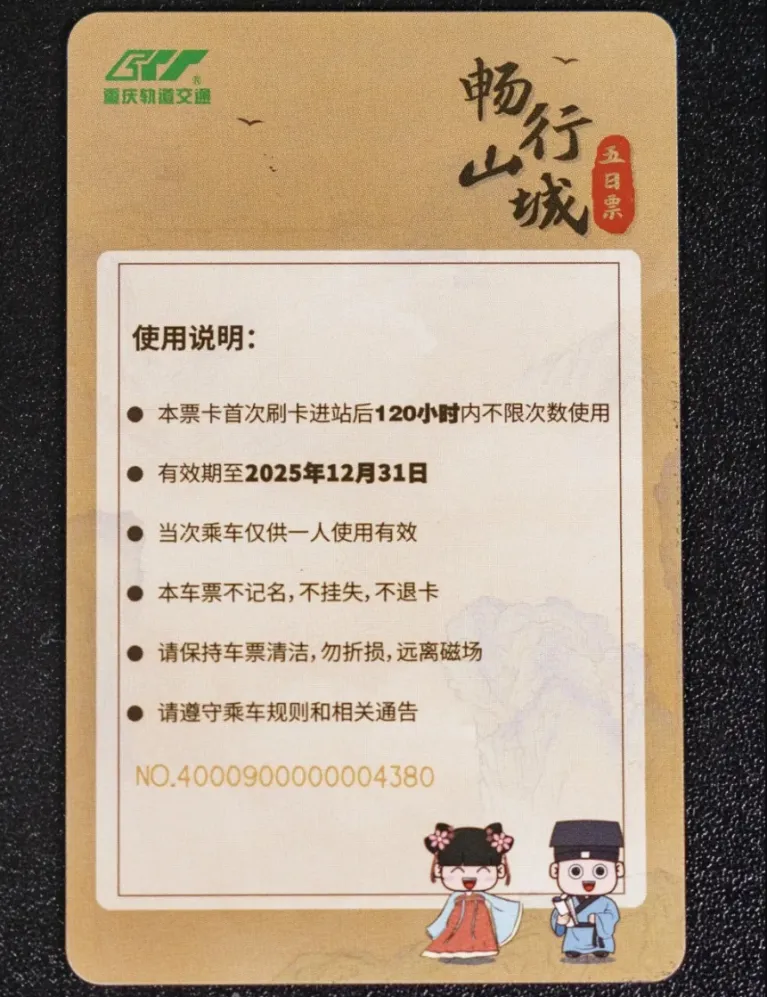 CRT®
重庆轨道交通
畅行山城
五日票
使用说明：
● 本票卡首次刷卡进站后120小时内不限次数使用
● 有效期至2025年12月31日
● 当次乘车仅供一人使用有效
● 本车票不记名，不挂失，不退卡
● 请保持车票清洁，勿折损，远离磁场
● 请遵守乘车规则和相关通告
NO.4000900000004380